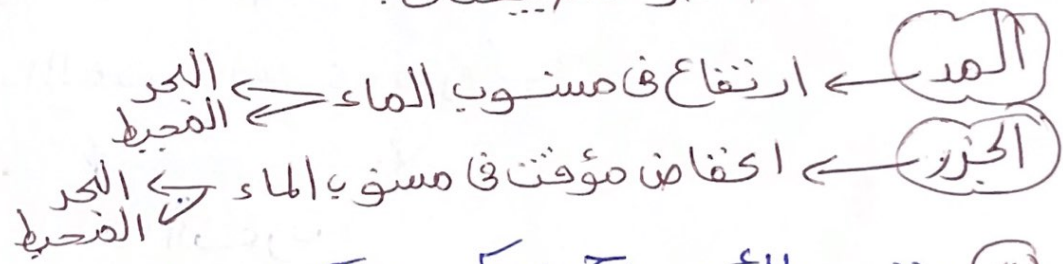 المد ← ارتفاع فى مستوب الماء ← البحر
المحيط
الجزر ← انخفاض مؤقت فى مستوب الماء ← البحر
المحيط